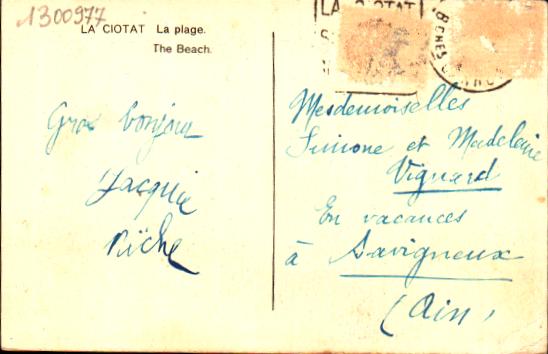 1300977
LA CIOTAT La plage.
The Beach.
LA CIOTAT
Gros bonjour
Jacquie
Riche
Mesdemoiselles
Simone et Madeleine
Viguard
En vacances
à Savigneux
(Ain)